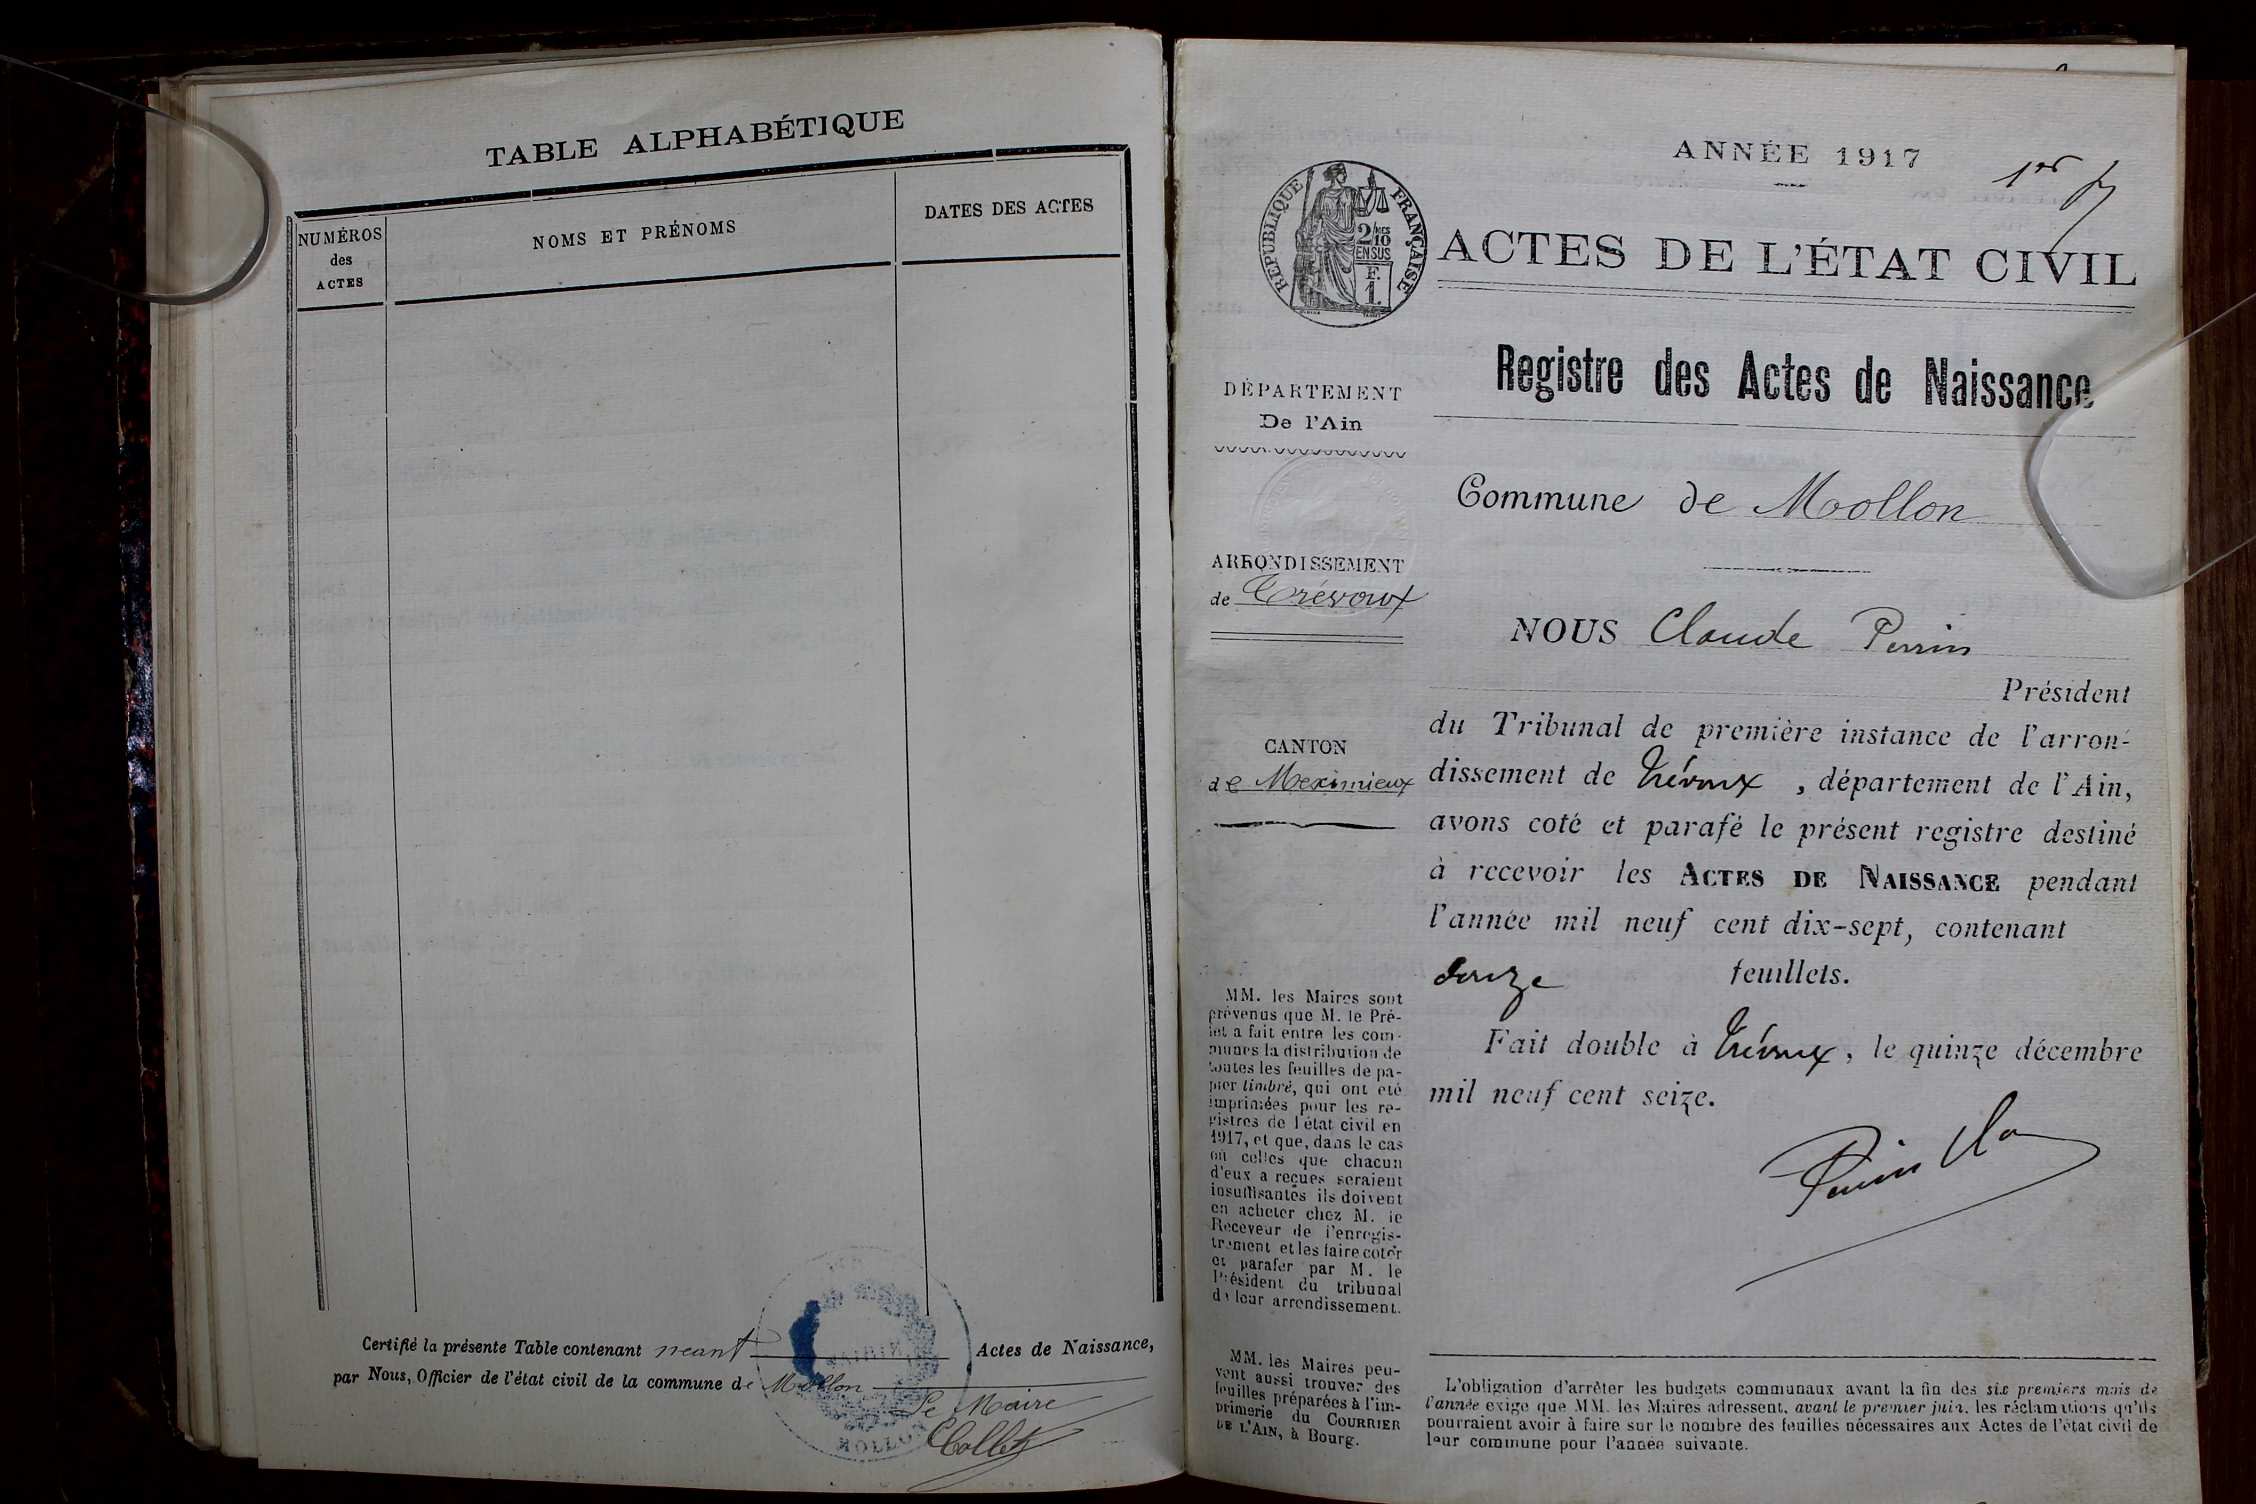 TABLE ALPHABÉTIQUE
NUMÉROS
des
ACTES
NOMS ET PRÉNOMS
DATES DES ACTES
Certifié la présente Table contenant neant Actes de Naissance,
par Nous, Officier de l'état civil de la commune de Mollon
Le Maire
Collet
MAIRIE
MOLLON
ANNÉE 1917
1er
RÉPUBLIQUE FRANÇAISE
2/10
MES
EN SUS
F.
1.
ACTES DE L'ÉTAT CIVIL
Registre des Actes de Naissance
DÉPARTEMENT
De l'Ain
Commune de Mollon
ARRONDISSEMENT
de Trévoux
NOUS Claude Perrin
Président
du Tribunal de première instance de l'arron-
CANTON
de Meximieux
dissement de Trévoux, département de l'Ain,
avons coté et parafé le présent registre destiné
à recevoir les ACTES DE NAISSANCE pendant
l'année mil neuf cent dix-sept, contenant
douze feuillets.
Fait double à Trévoux, le quinze décembre
mil neuf cent seize.
Perrin Cla
MM. les Maires sont
prévenus que M. le Pré-
fet a fait entre les com-
munes la distribution de
toutes les feuilles de pa-
pier timbré, qui ont été
imprimées pour les re-
gistres de l'état civil en
1917, et que, dans le cas
où celles que chacun
d'eux a reçues seraient
insuffisantes ils doivent
en acheter chez M. le
Receveur de l'enregis-
trement et les faire coter
et parafer par M. le
Président du tribunal
de leur arrondissement.
MM. les Maires peu-
vent aussi trouver des
feuilles préparées à l'im-
primerie du COURRIER
DE L'AIN, à Bourg.
L'obligation d'arrêter les budgets communaux avant la fin des six premiers mois de
l'année exige que MM. les Maires adressent, avant le premier juin, les réclamations qu'ils
pourraient avoir à faire sur le nombre des feuilles nécessaires aux Actes de l'état civil de
leur commune pour l'année suivante.